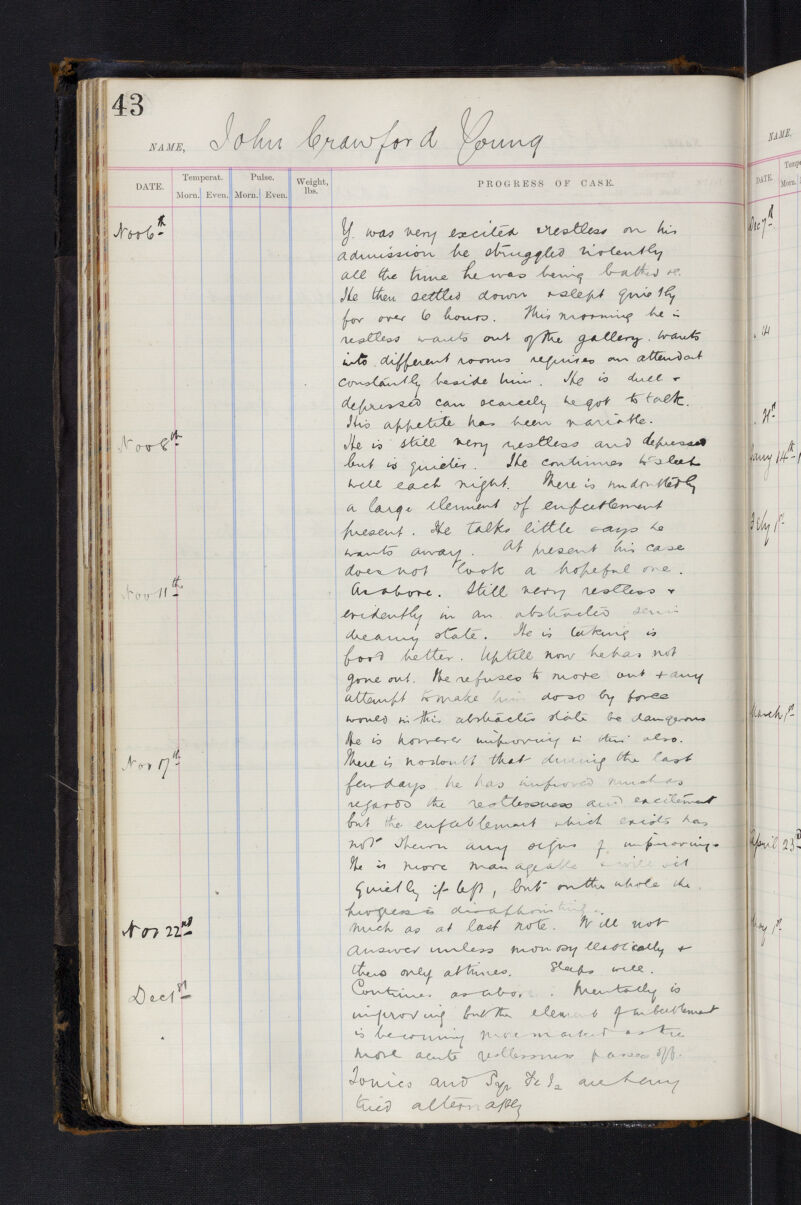 43
NAME, John Crawford Young
DATE. Temperat. Pulse. Weight, lbs. PROGRESS OF CASE.
Morn. Even. Morn. Even.
Nov 6th Y. was very excited & restless on his
admission he struggled violently
all the time he was being bathed &c.
He then settled down & slept quietly
for over 6 hours. This morning he is
restless wants out of the gallery. wants
into different rooms requires an attendant
constantly beside him. He is dull &
depressed can scarcely be got to talk.
His appetite has been variable.
Nov 8th He is still very restless and depressed
but is quieter. He continues to sleep
well each night. There is undoubtedly
a large element of enfeeblement
present. He talks little & says he
wants away. At present his case
does not look a hopeful one.
Nov 11th As above. Still very restless &
evidently in an abstracted semi
dreamy state. He is taking is
food better. Uptill now he has not
gone out. He refuses to move out & any
attempt to make him do so by force
would in this abstracted state be dangerous
He is however improving in this also.
Nov 17th There is no doubt that during the last
few days he has improved much as
regards the restlessness and excitement
but the enfeeblement which exists has
not shewn any signs of improving.
He is more manageable & will sit
quietly if left, but on the whole the
progress is disappointing.
Nov 22nd Much as at last note. Will not
answer unless monosyllabically &
then only at times. Sleeps well.
Dec 1st Continues as above. Mentally is
improving but the element of enfeeblement
is becoming more marked as the
more acute restlessness passes off.
Tonics and Syr Fe I2 are being
tried alternately
NAME,
DATE. Morn.
Dec 7th
" 14
Jany 14th
Feby 1st
March 1st
April 23rd
May 1st